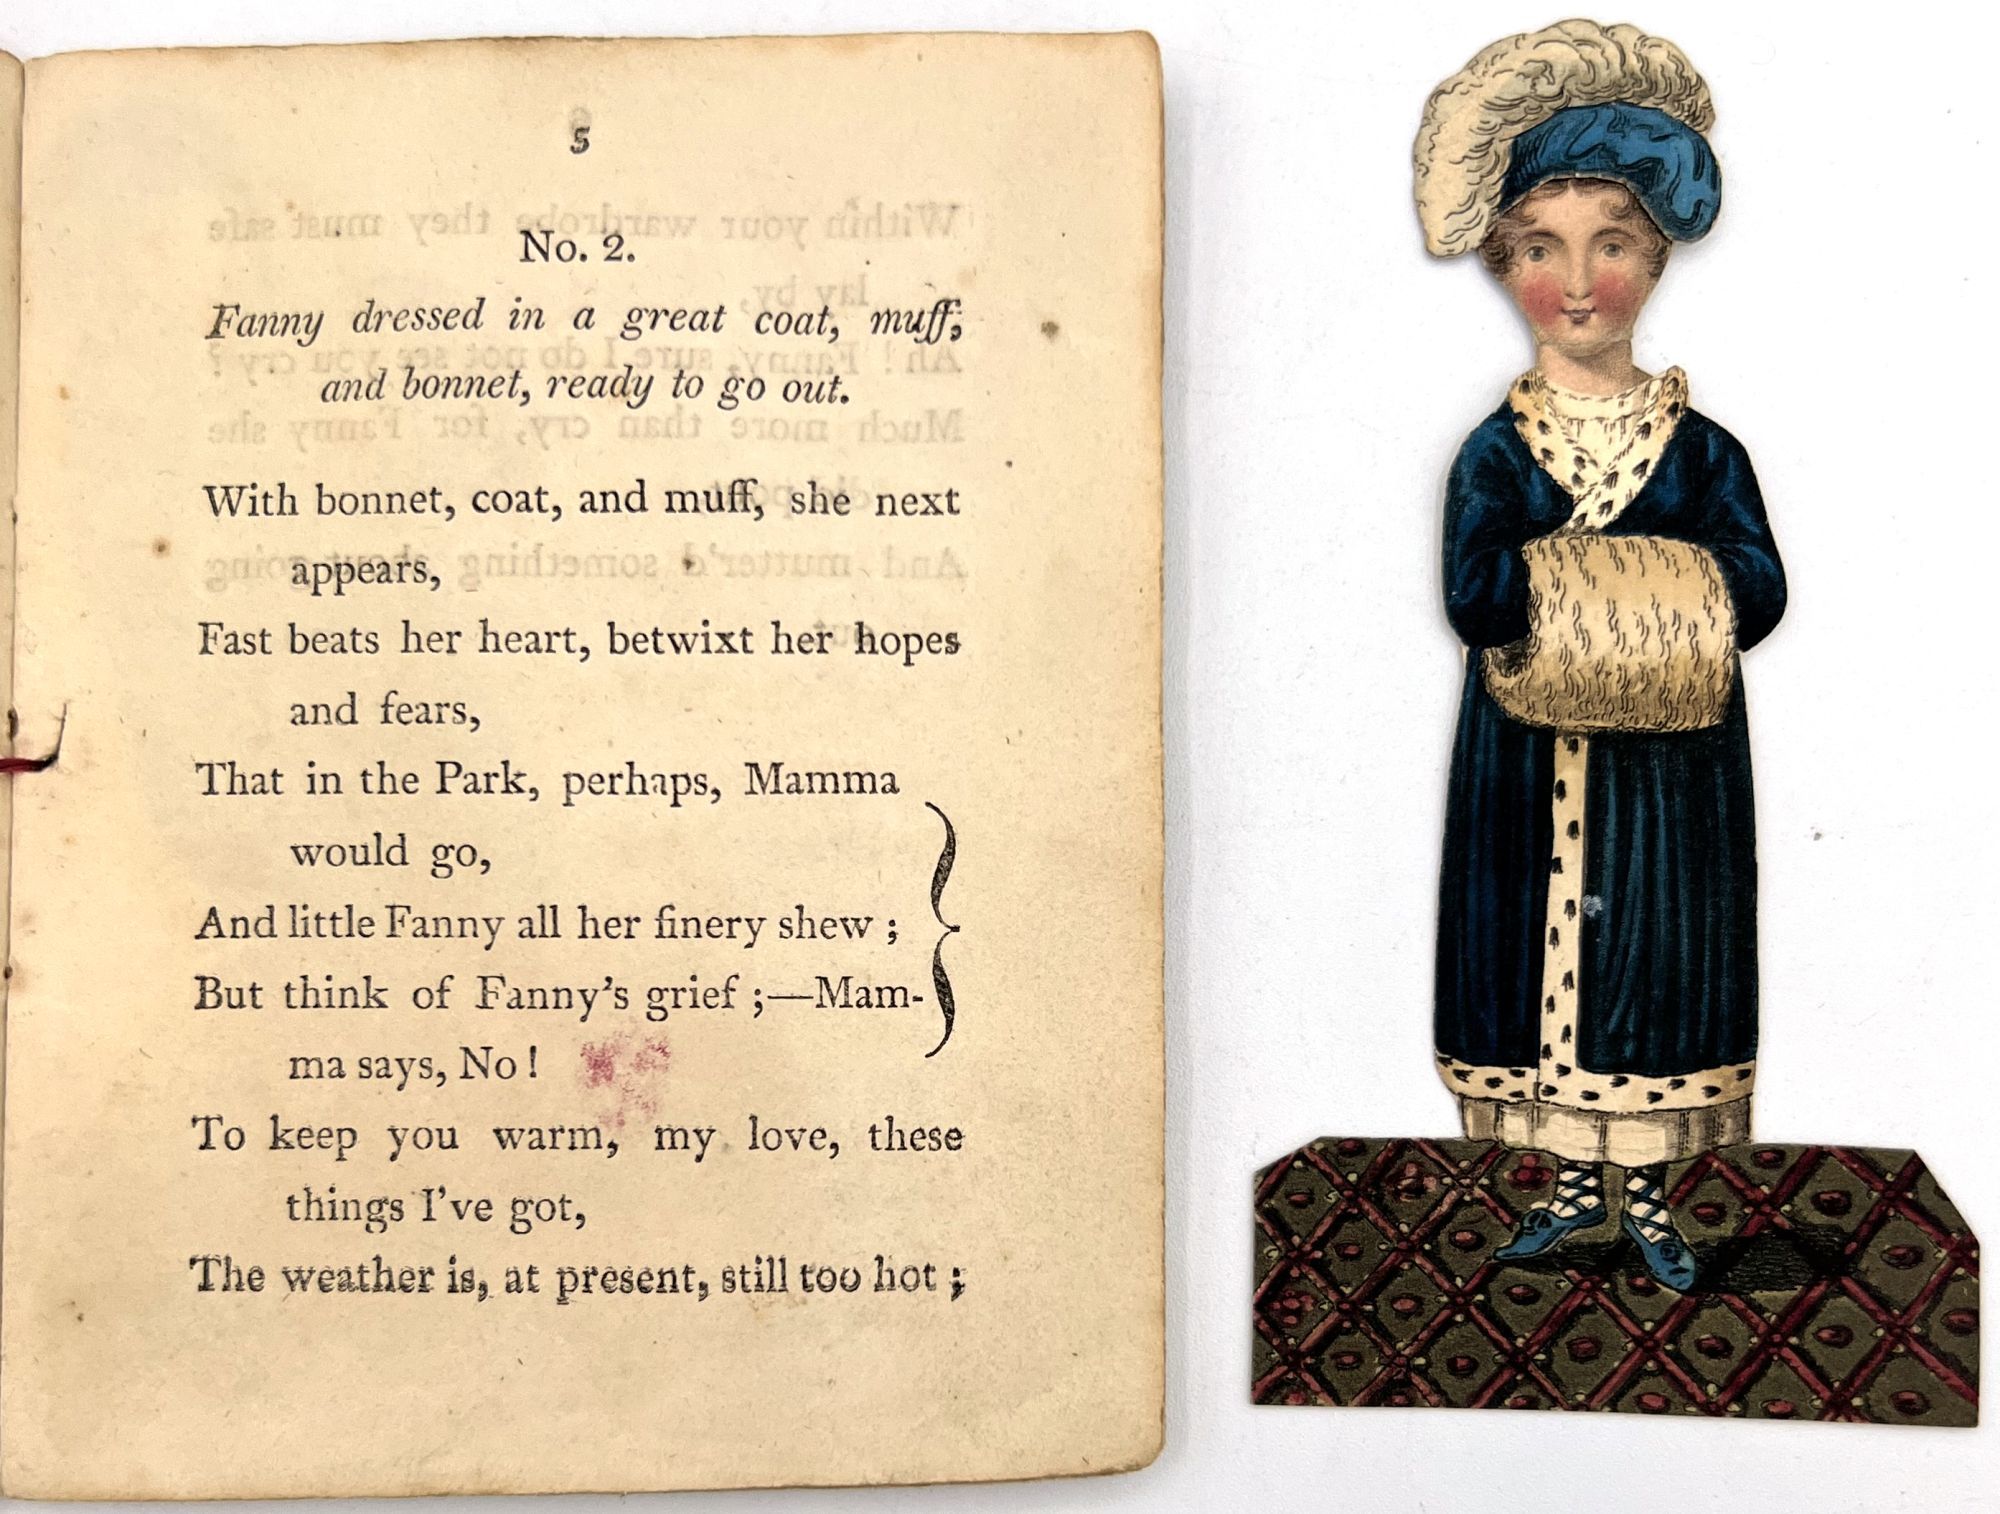 5
No. 2.
Fanny dressed in a great coat, muff,
and bonnet, ready to go out.
With bonnet, coat, and muff, she next
appears,
Fast beats her heart, betwixt her hopes
and fears,
That in the Park, perhaps, Mamma
would go,
And little Fanny all her finery shew ;
But think of Fanny's grief ;—Mam-
ma says, No !
To keep you warm, my love, these
things I've got,
The weather is, at present, still too hot ;